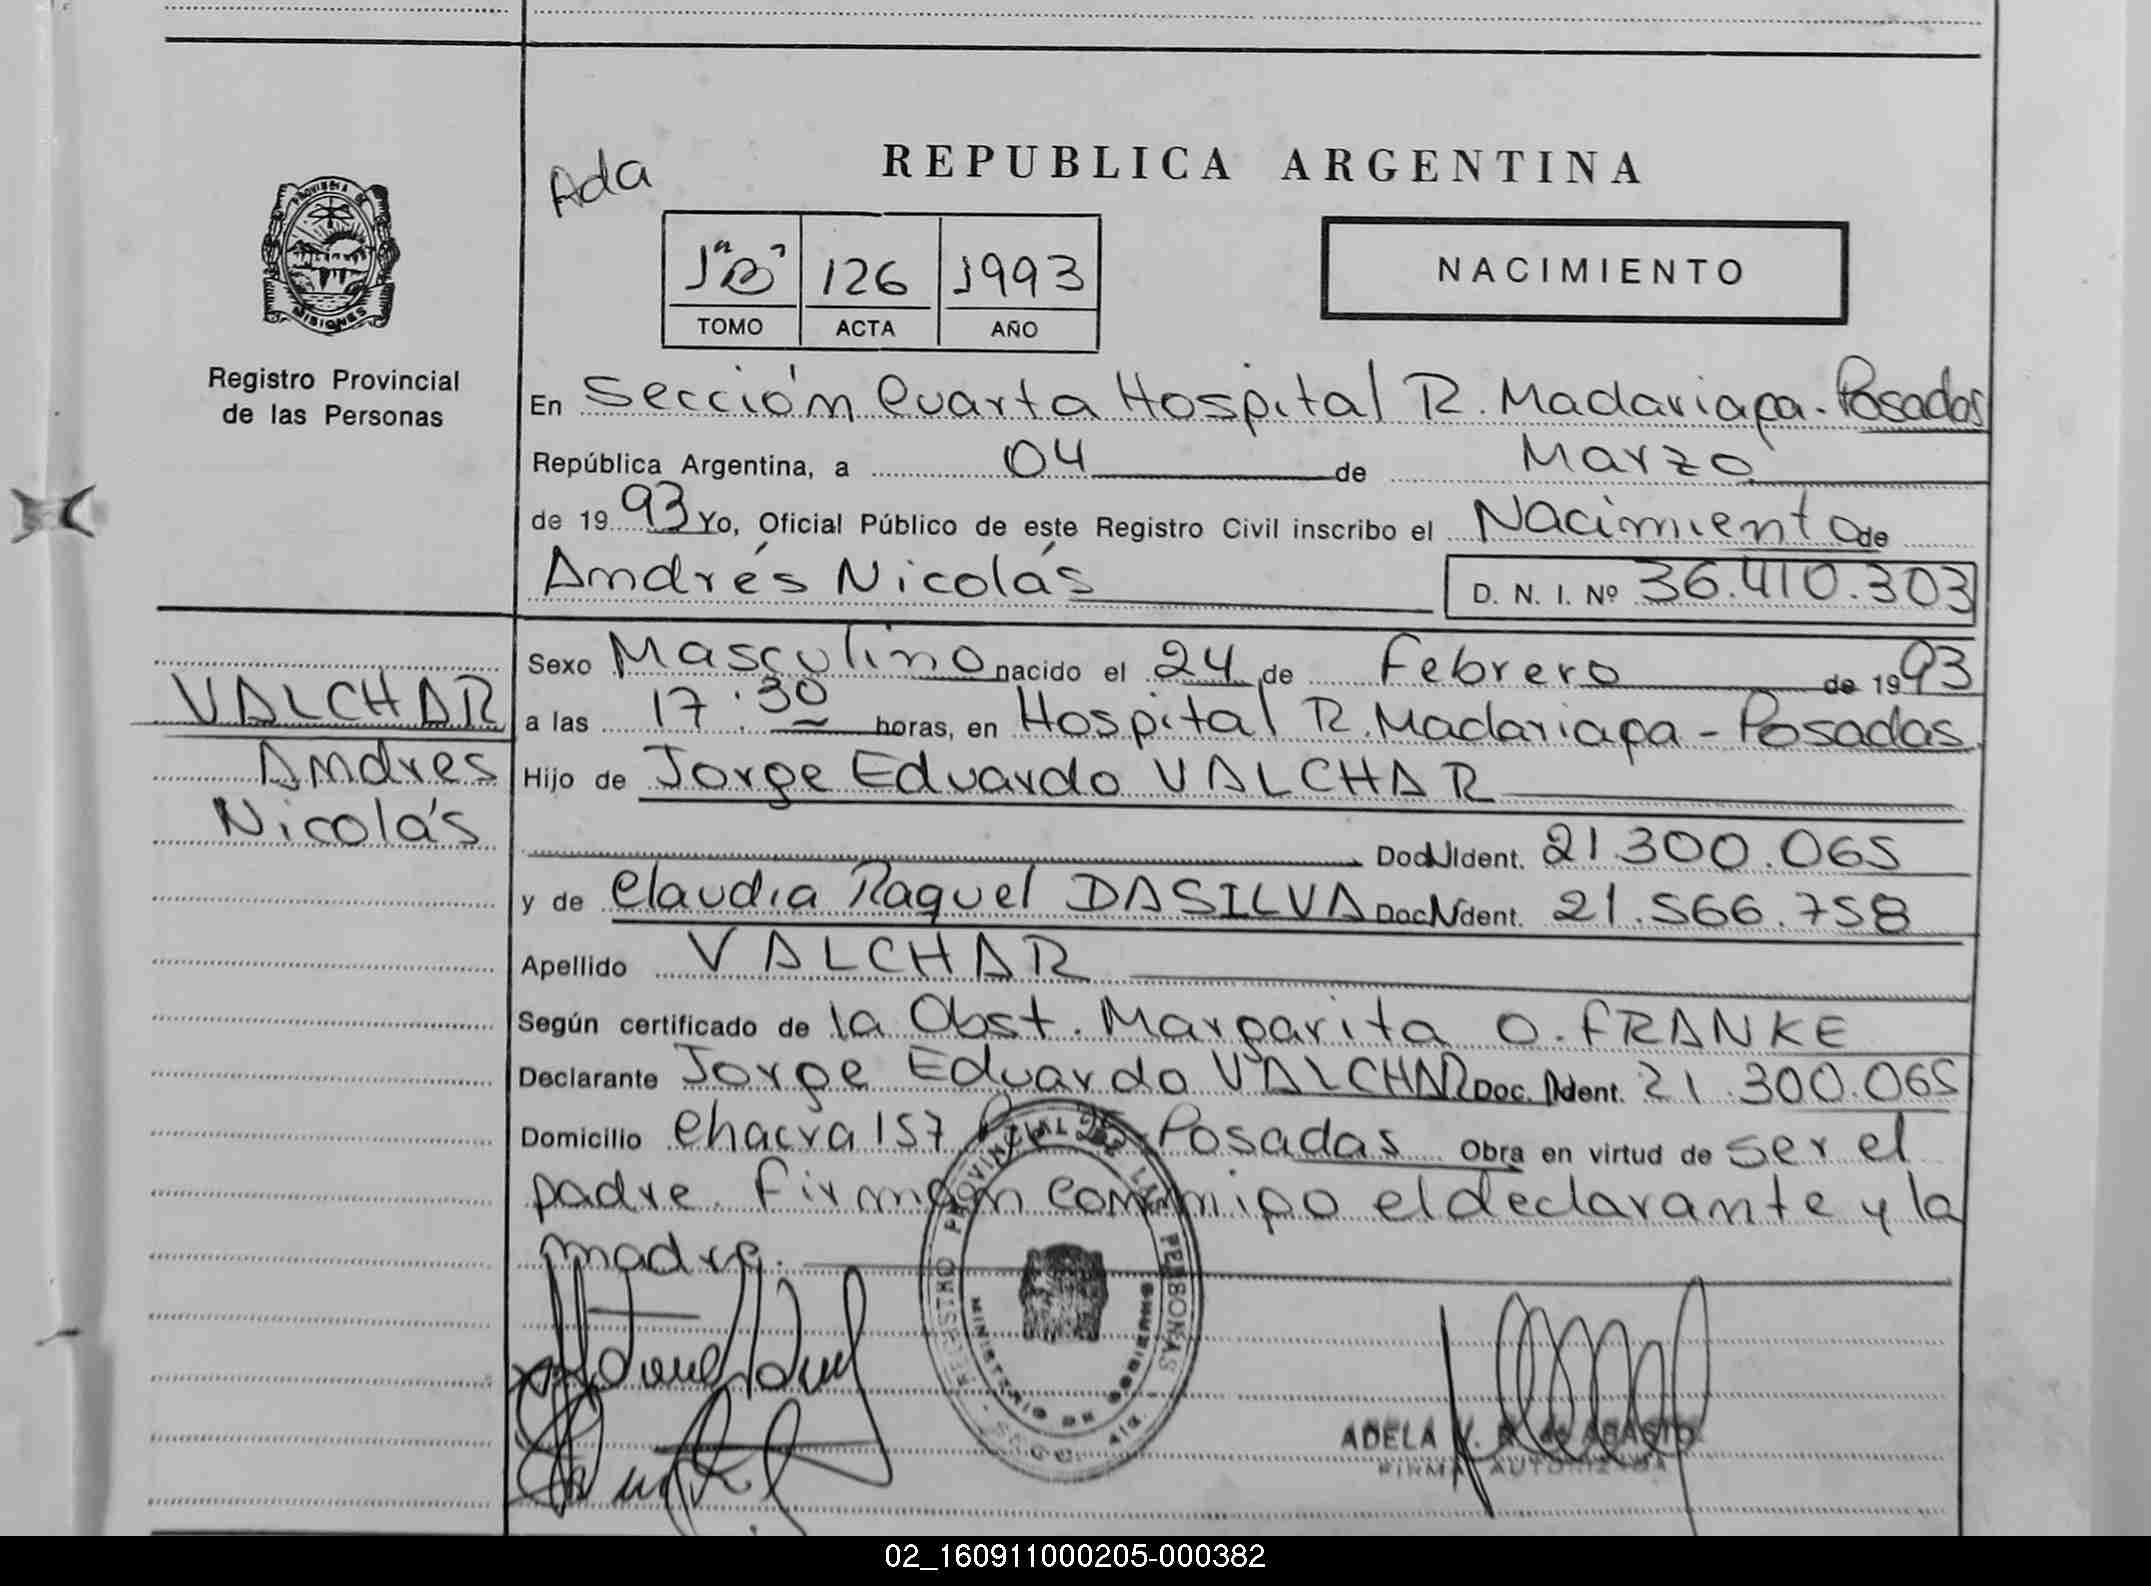 REPUBLICA ARGENTINA
Ada
1 "B" 126 1993
TOMO ACTA AÑO
NACIMIENTO
PROVINCIA DE MISIONES
Registro Provincial
de las Personas
En Sección Cuarta Hospital R. Madariaga - Posadas
República Argentina, a 04 de Marzo
de 1993 Yo, Oficial Público de este Registro Civil inscribo el Nacimiento de
Andrés Nicolás D. N. I. Nº 36.410.303
Sexo Masculino nacido el 24 de Febrero de 1993
VALCHAR
a las 17:30 horas, en Hospital R. Madariaga - Posadas
Andres
Hijo de Jorge Eduardo VALCHAR
Nicolás
Doc N Ident. 21.300.065
y de Claudia Raquel DASILVA Doc N Ident. 21.566.758
Apellido VALCHAR
Según certificado de la Obst. Margarita O. FRANKE
Declarante Jorge Eduardo VALCHAR Doc. N Ident. 21.300.065
Domicilio Chacra 157 Posadas Obra en virtud de ser el
padre. Firman conmigo el declarante y la
madre.
REGISTRO PROVINCIAL DE LAS PERSONAS
MINISTERIO DE GOBIERNO
ADELA
FIRMA AUTORIZADA
02_160911000205-000382